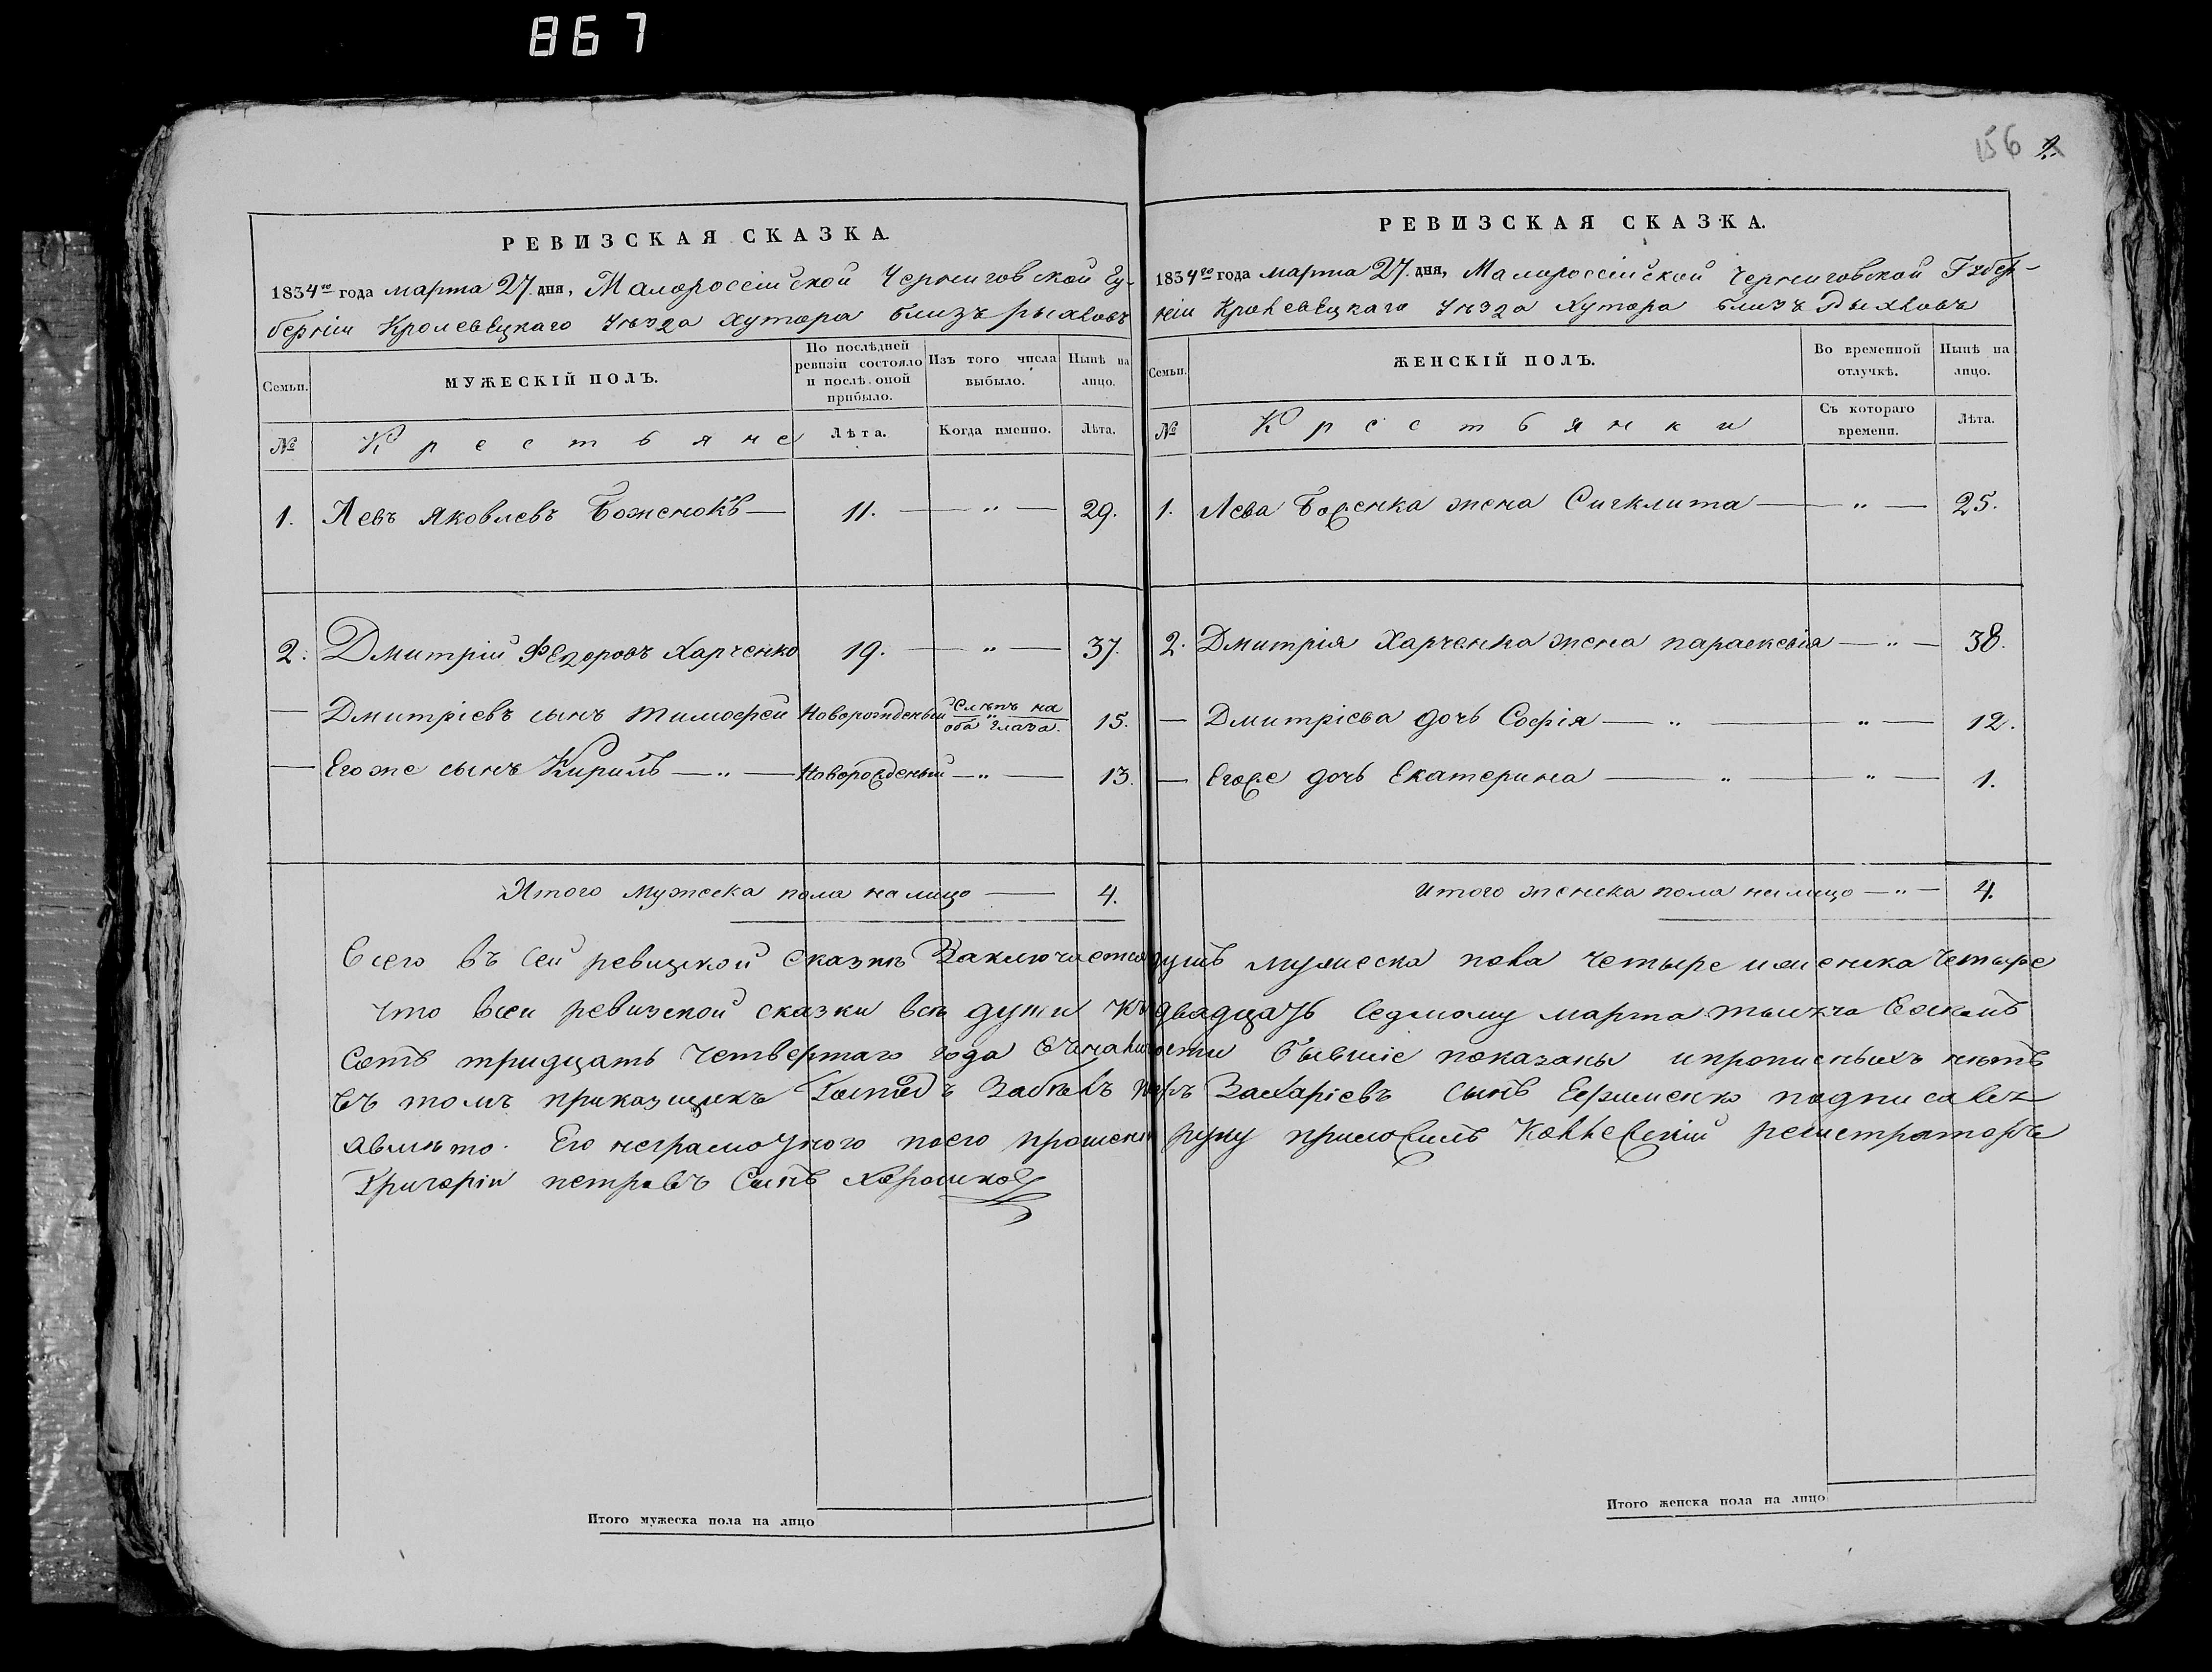 867
156 2
РЕВИЗСКАЯ СКАЗКА.
1834го года марта 27. дня, Малороссійской Черниговской Гу-
берніи Кролевецкаго уѣзда хутора близъ рыхловъ
Семьи.
МУЖЕСКІЙ ПОЛЪ.
По послѣдней ревизіи состояло и послѣ оной прибыло.
Изъ того числа выбыло.
Нынѣ на лицо.
№ Крестьяне Лѣта. Когда именно. Лѣта.
1. Левъ Яковлевъ Боженокъ — 11. — „ — 29.
2. Дмитрій Федоровъ Харченко 19. — „ — 37.
— Дмитріевъ сынъ Тимофей Новорожденый Слѣпъ на оба глаза. 15.
— Егоже сынъ Кирилъ — „ — Новорожденый — „ — 13.
Итого мужеска пола на лицо — 4.
РЕВИЗСКАЯ СКАЗКА.
1834го года марта 27. дня, Малороссійской Черниговской Губер-
ніи Кролевецкаго уѣзда Хутора близъ Рыхловъ
Семьи.
ЖЕНСКІЙ ПОЛЪ.
Во временной отлучкѣ.
Нынѣ на лицо.
№ Крестьянки Съ котораго времени. Лѣта.
1. Лева Боженка жена Сигклита — „ — 25.
2. Дмитрія Харченка жена параскевія — „ — 38.
— Дмитріева дочь Софія — „ — „ — 12.
— Егоже дочь Екатерина — „ — „ — 1.
Итого женска пола налицо — „ — 4.
Всего въ сей ревизской сказкѣ Заключается душъ мужеска пола четыре и женска четыре
что всей ревизской сказки всѣ души къ двадцать седмому марта тысяча восемъ
сотъ тридцать четвертаго года бывшіе показаны и прописныхъ нѣтъ
въ томъ приказщикъ Захаріевъ сынъ подписался
авмѣсто Его неграмотного поего прошенію руку приложилъ Коллежскій регистраторъ
Григорій петровъ Сынъ
Итого мужеска пола на лицо
Итого женска пола на лицо